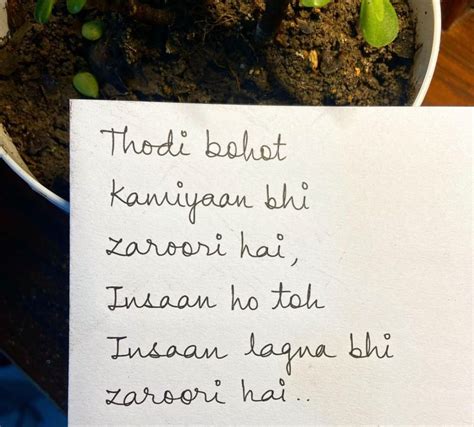 Thodi bohot
Kamiyaan bhi
zaroori hai,
Insaan ho toh
Insaan lagna bhi
zaroori hai..